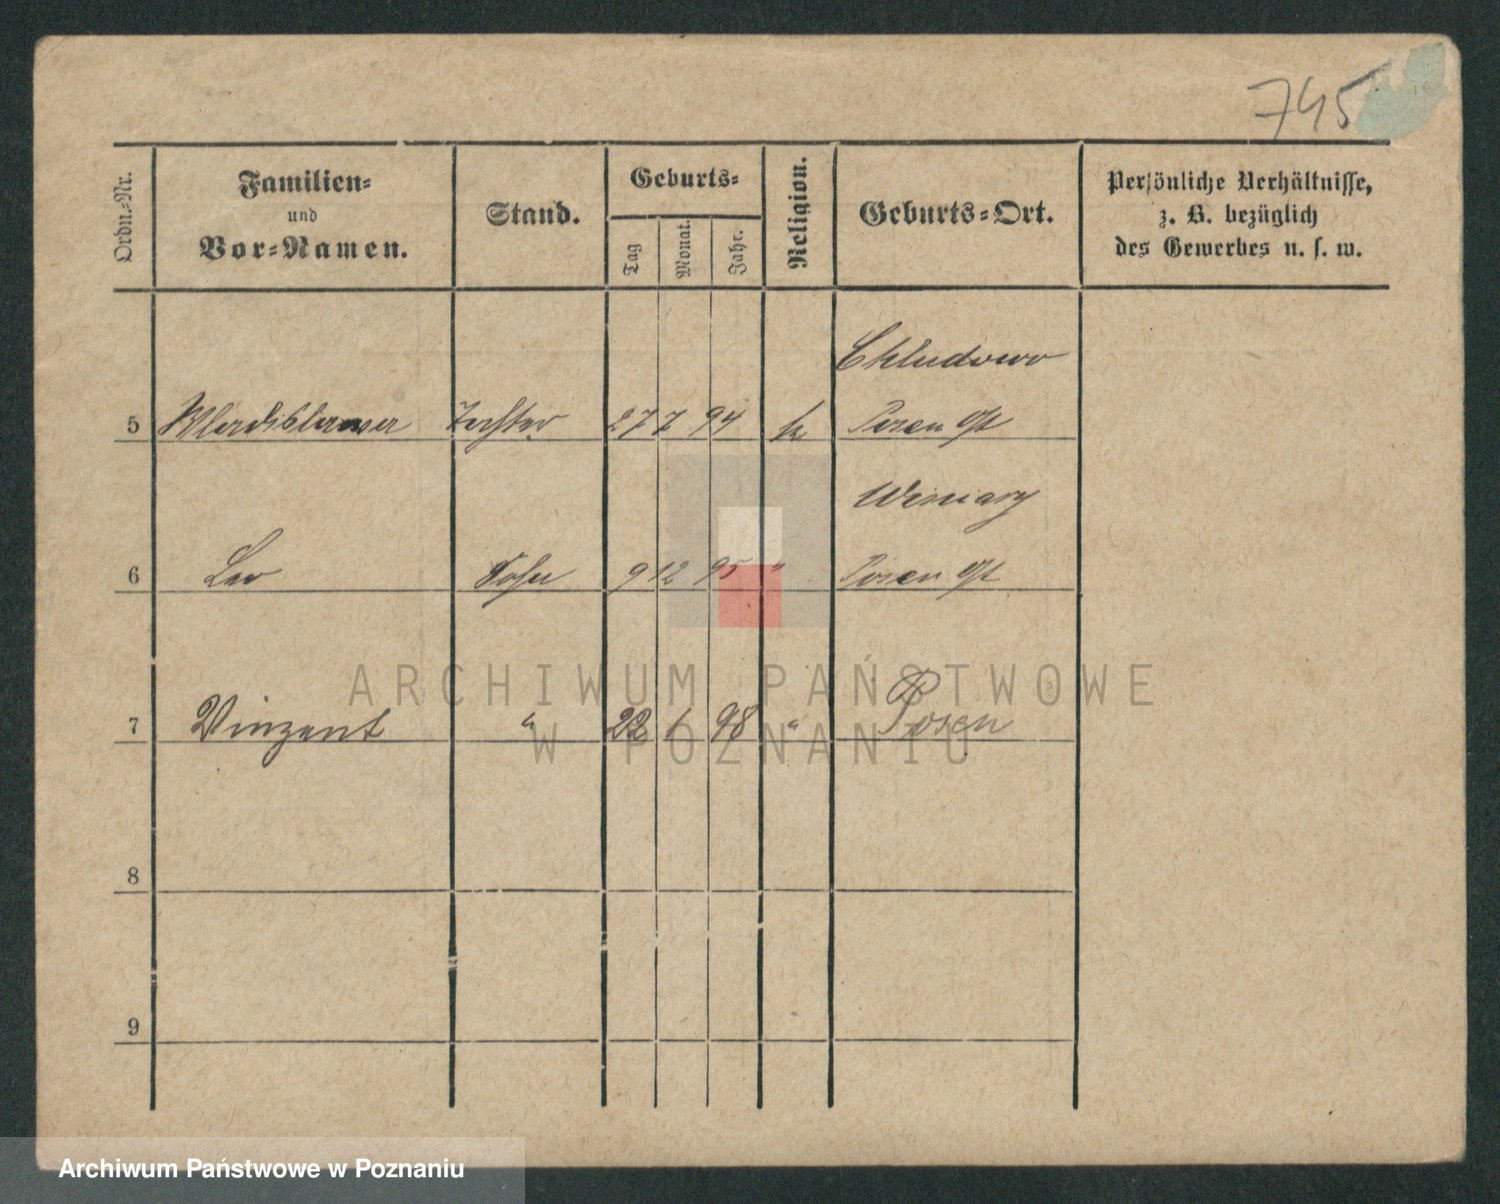 745
Ordn.-Nr.
Familien-
und
Vor-Namen.
Stand.
Geburts-
Tag
Monat.
Jahr.
Religion.
Geburts-Ort.
Persönliche Verhältnisse,
z. B. bezüglich
des Gewerbes u. s. w.
Chludowo
5 Wladislawa Tochter 27 7 94 k Posen Ost
Winiary
6 Leo Sohn 9 12 95 " Posen Ost
7 Vinzent " 22 1 98 " Posen
8
9
ARCHIWUM PAŃSTWOWE
W POZNANIU
Archiwum Państwowe w Poznaniu